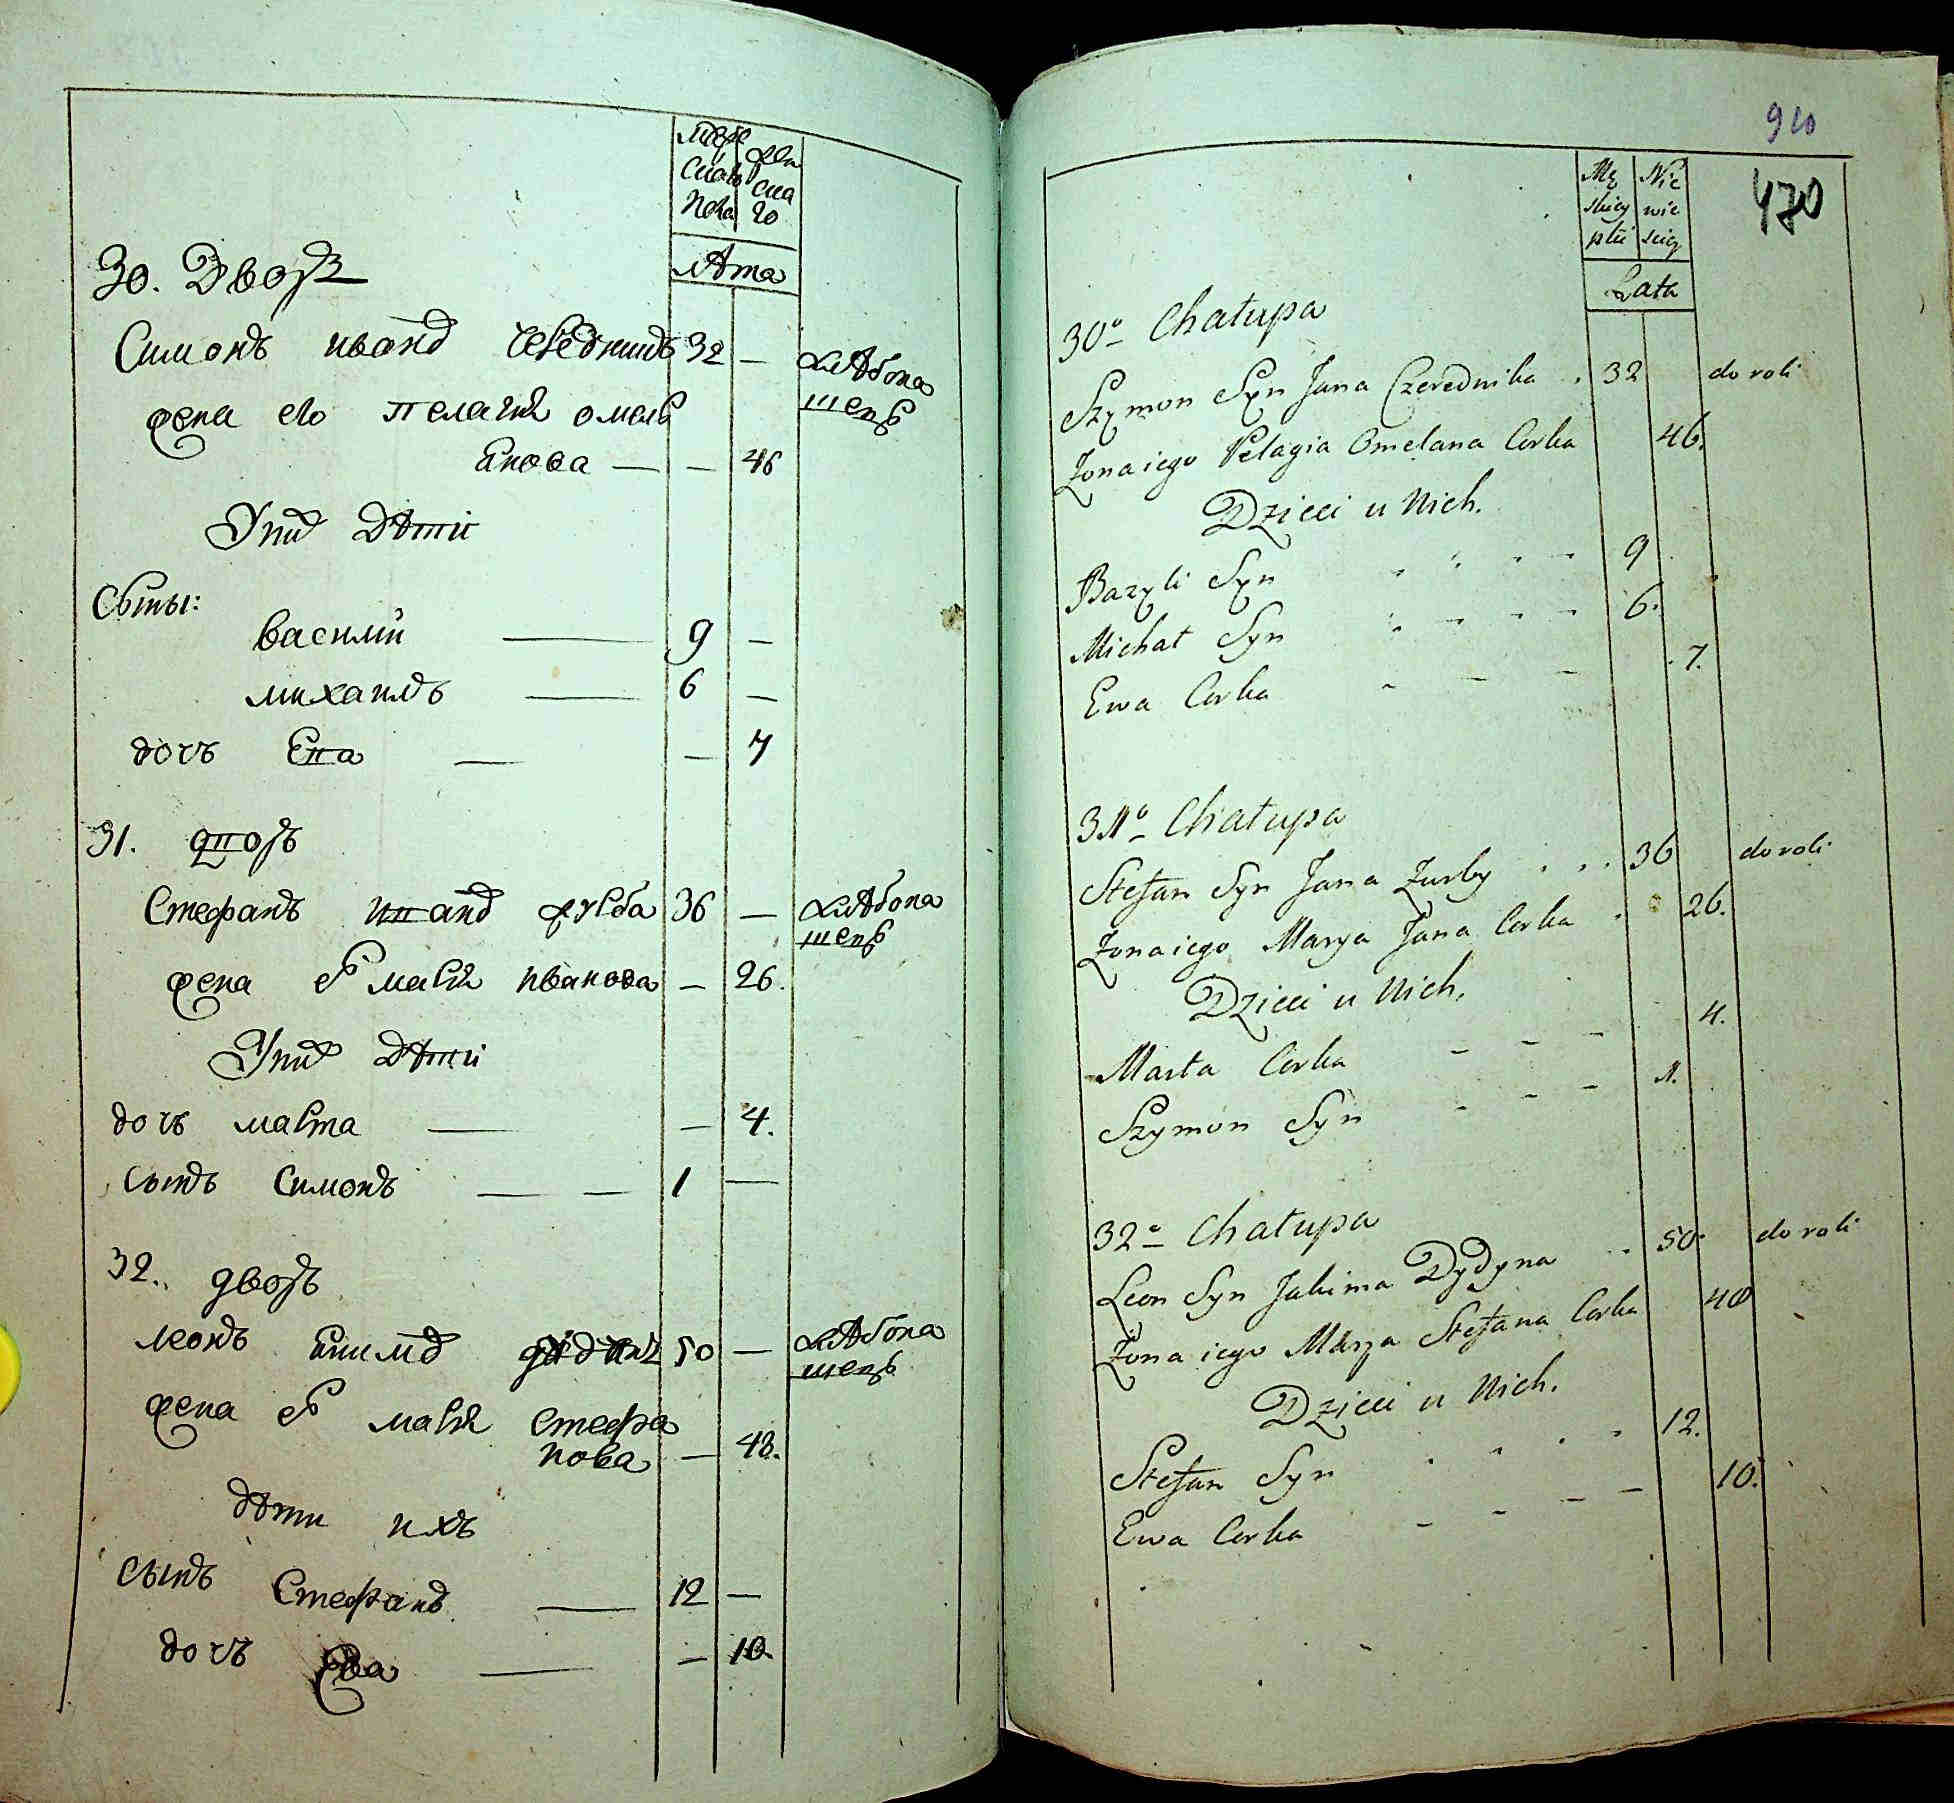 муже
скаго
пола
жен
ска
го
лѣта
30. Дворъ
Симонъ иванд чередникъ 32 — хлѣбопа
шецъ
жена его пелагия омель
янова — — 46
У них дѣти
Сыны:
василий — 9 —
михаилъ — 6 —
дочъ Ева — — 7
31. дворъ
Стефанъ иванд журба 36 — хлѣбопа
шецъ
жена его мария иванова — 26.
У них дѣти
дочъ марта — — 4.
сынъ Симонъ — — 1 —
32. дворъ
леонъ якимд дидинъ 50 — хлѣбопа
шецъ
жена его мария стефа
нова — 48.
дѣти ихъ
сынъ Стефанъ — 12 —
дочъ Ева — — 10.
910
470
Mę
skiey
płci
Nie
wie
sciey
Lata
30º Chałupa
Szymon Syn Jana Czerednika . 32 do roli
Żona iego Pelagia Omelana Corka 46.
Dzieci u Nich.
Bazyli Syn 9
Michał Syn 6.
Ewa Corka 7.
31º Chałupa
Stefan Syn Jana Żurby . . . 36 do roli
Żona iego Marya Jana Corka 26.
Dzieci u Nich.
Marta Corka 4.
Szymon Syn 1.
32º Chałupa
Leon Syn Jakima Dydyna 50. do roli
Żona iego Marya Stefana Corka 48
Dzieci u Nich.
Stefan Syn 12.
Ewa Corka 10.